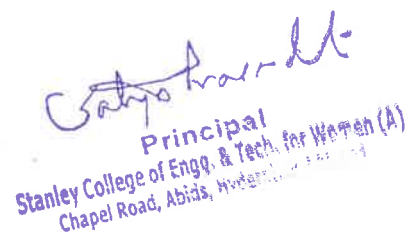 Satya Prasad
Principal
Stanley College of Engg. & Tech. for Women (A)
Chapel Road, Abids,